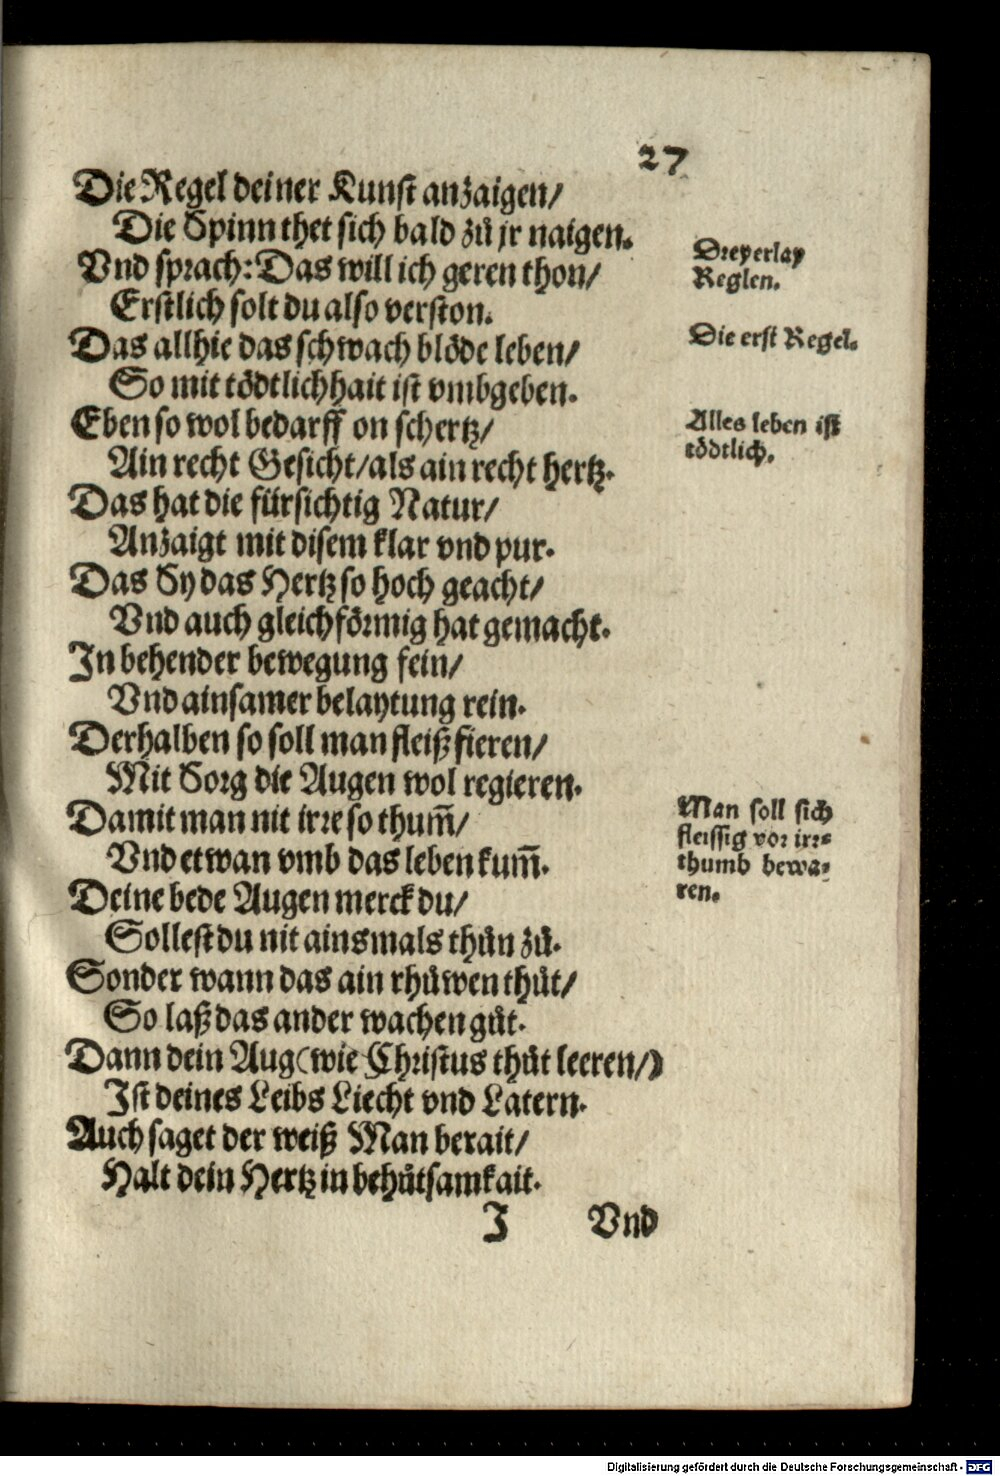 27
Die Regel deiner Kunst anzaigen/
Die Spinn thet sich bald zů jr naigen.
Vnd sprach: Das will ich geren thon/
Erstlich solt du also verston.
Das allhie das schwach blöde leben/
So mit tödtlichhait ist vmbgeben.
Eben so wol bedarff on schertz/
Ain recht Gesicht/als ain recht hertz.
Das hat die fürsichtig Natur/
Anzaigt mit disem klar vnd pur.
Das Sy das Hertz so hoch geacht/
Vnd auch gleichförmig hat gemacht.
In behender bewegung fein/
Vnd ainsamer belaytung rein.
Derhalben so soll man fleiß fieren/
Mit Sorg die Augen wol regieren.
Damit man nit irre so thum̃/
Vnd etwan vmb das leben kum̃.
Deine bede Augen merck du/
Sollest du nit ainsmals thůn zů.
Sonder wann das ain rhůwen thůt/
So laß das ander wachen gůt.
Dann dein Aug (wie Christus thůt leeren/)
Ist deines Leibs Liecht vnd Latern.
Auch saget der weiß Man berait/
Halt dein Hertz in behůtsamkait.
I Vnd
Dreyerlay
Reglen.
Die erst Regel.
Alles leben ist
tödtlich.
Man soll sich
fleissig vor irr-
thumb bewa-
ren.
Digitalisierung gefördert durch die Deutsche Forschungsgemeinschaft - DFG